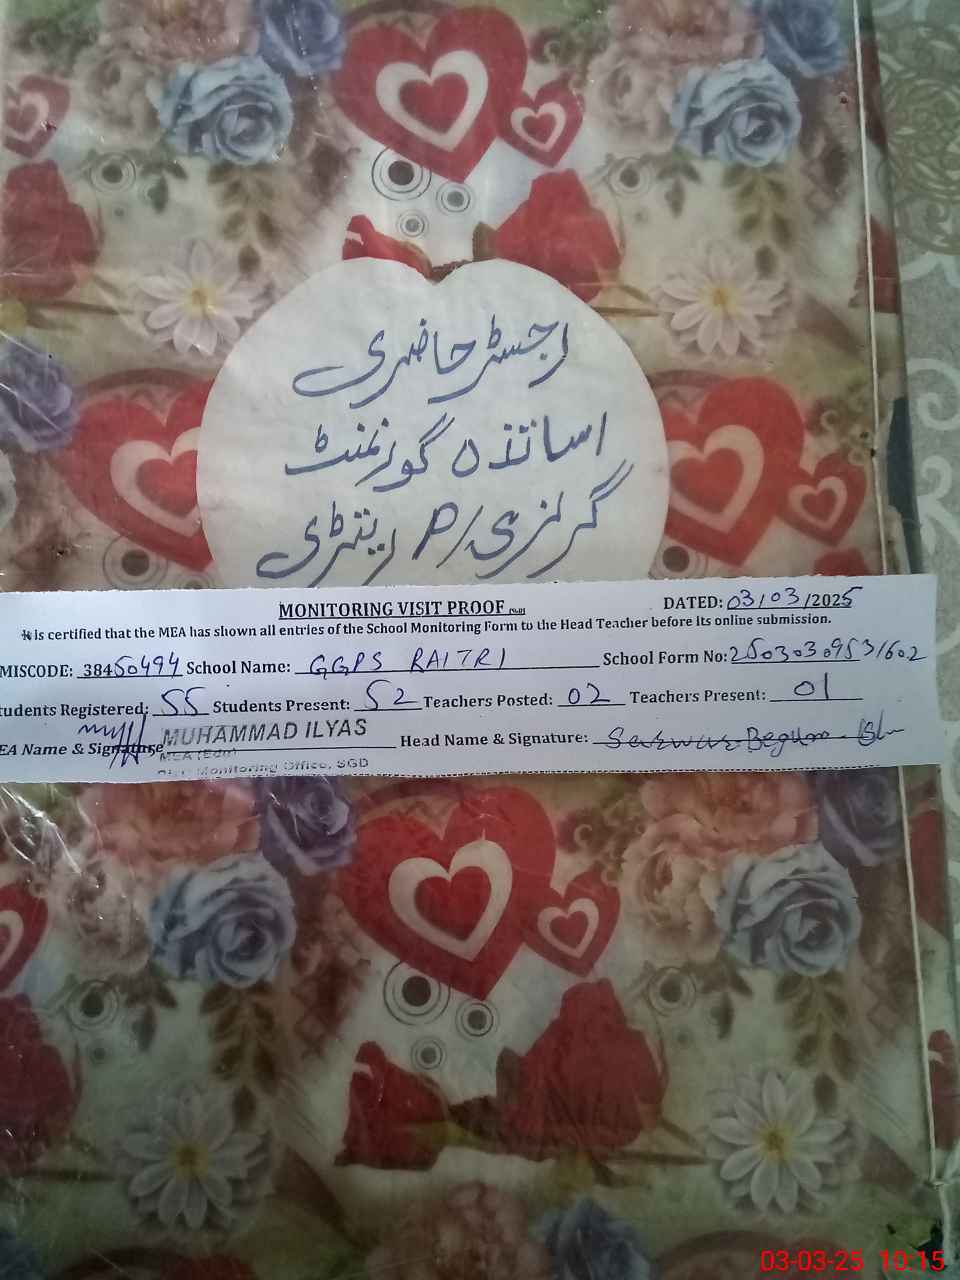 رجسٹر حاضری
اساتذہ گورنمنٹ
گرلز پرائمری
MONITORING VISIT PROOF
DATED: 03/03/2025
It is certified that the MEA has shown all entries of the School Monitoring Form to the Head Teacher before its online submission.
MISCODE: 38450494 School Name: GGPS RAITRI School Form No: 2503030953/602
tudents Registered: 55 Students Present: 52 Teachers Posted: 02 Teachers Present: 01
EA Name & Signature MUHAMMAD ILYAS Head Name & Signature: Serwar Begum
MEA (Edu)
Monitoring Office, SGD
03-03-25 10:15